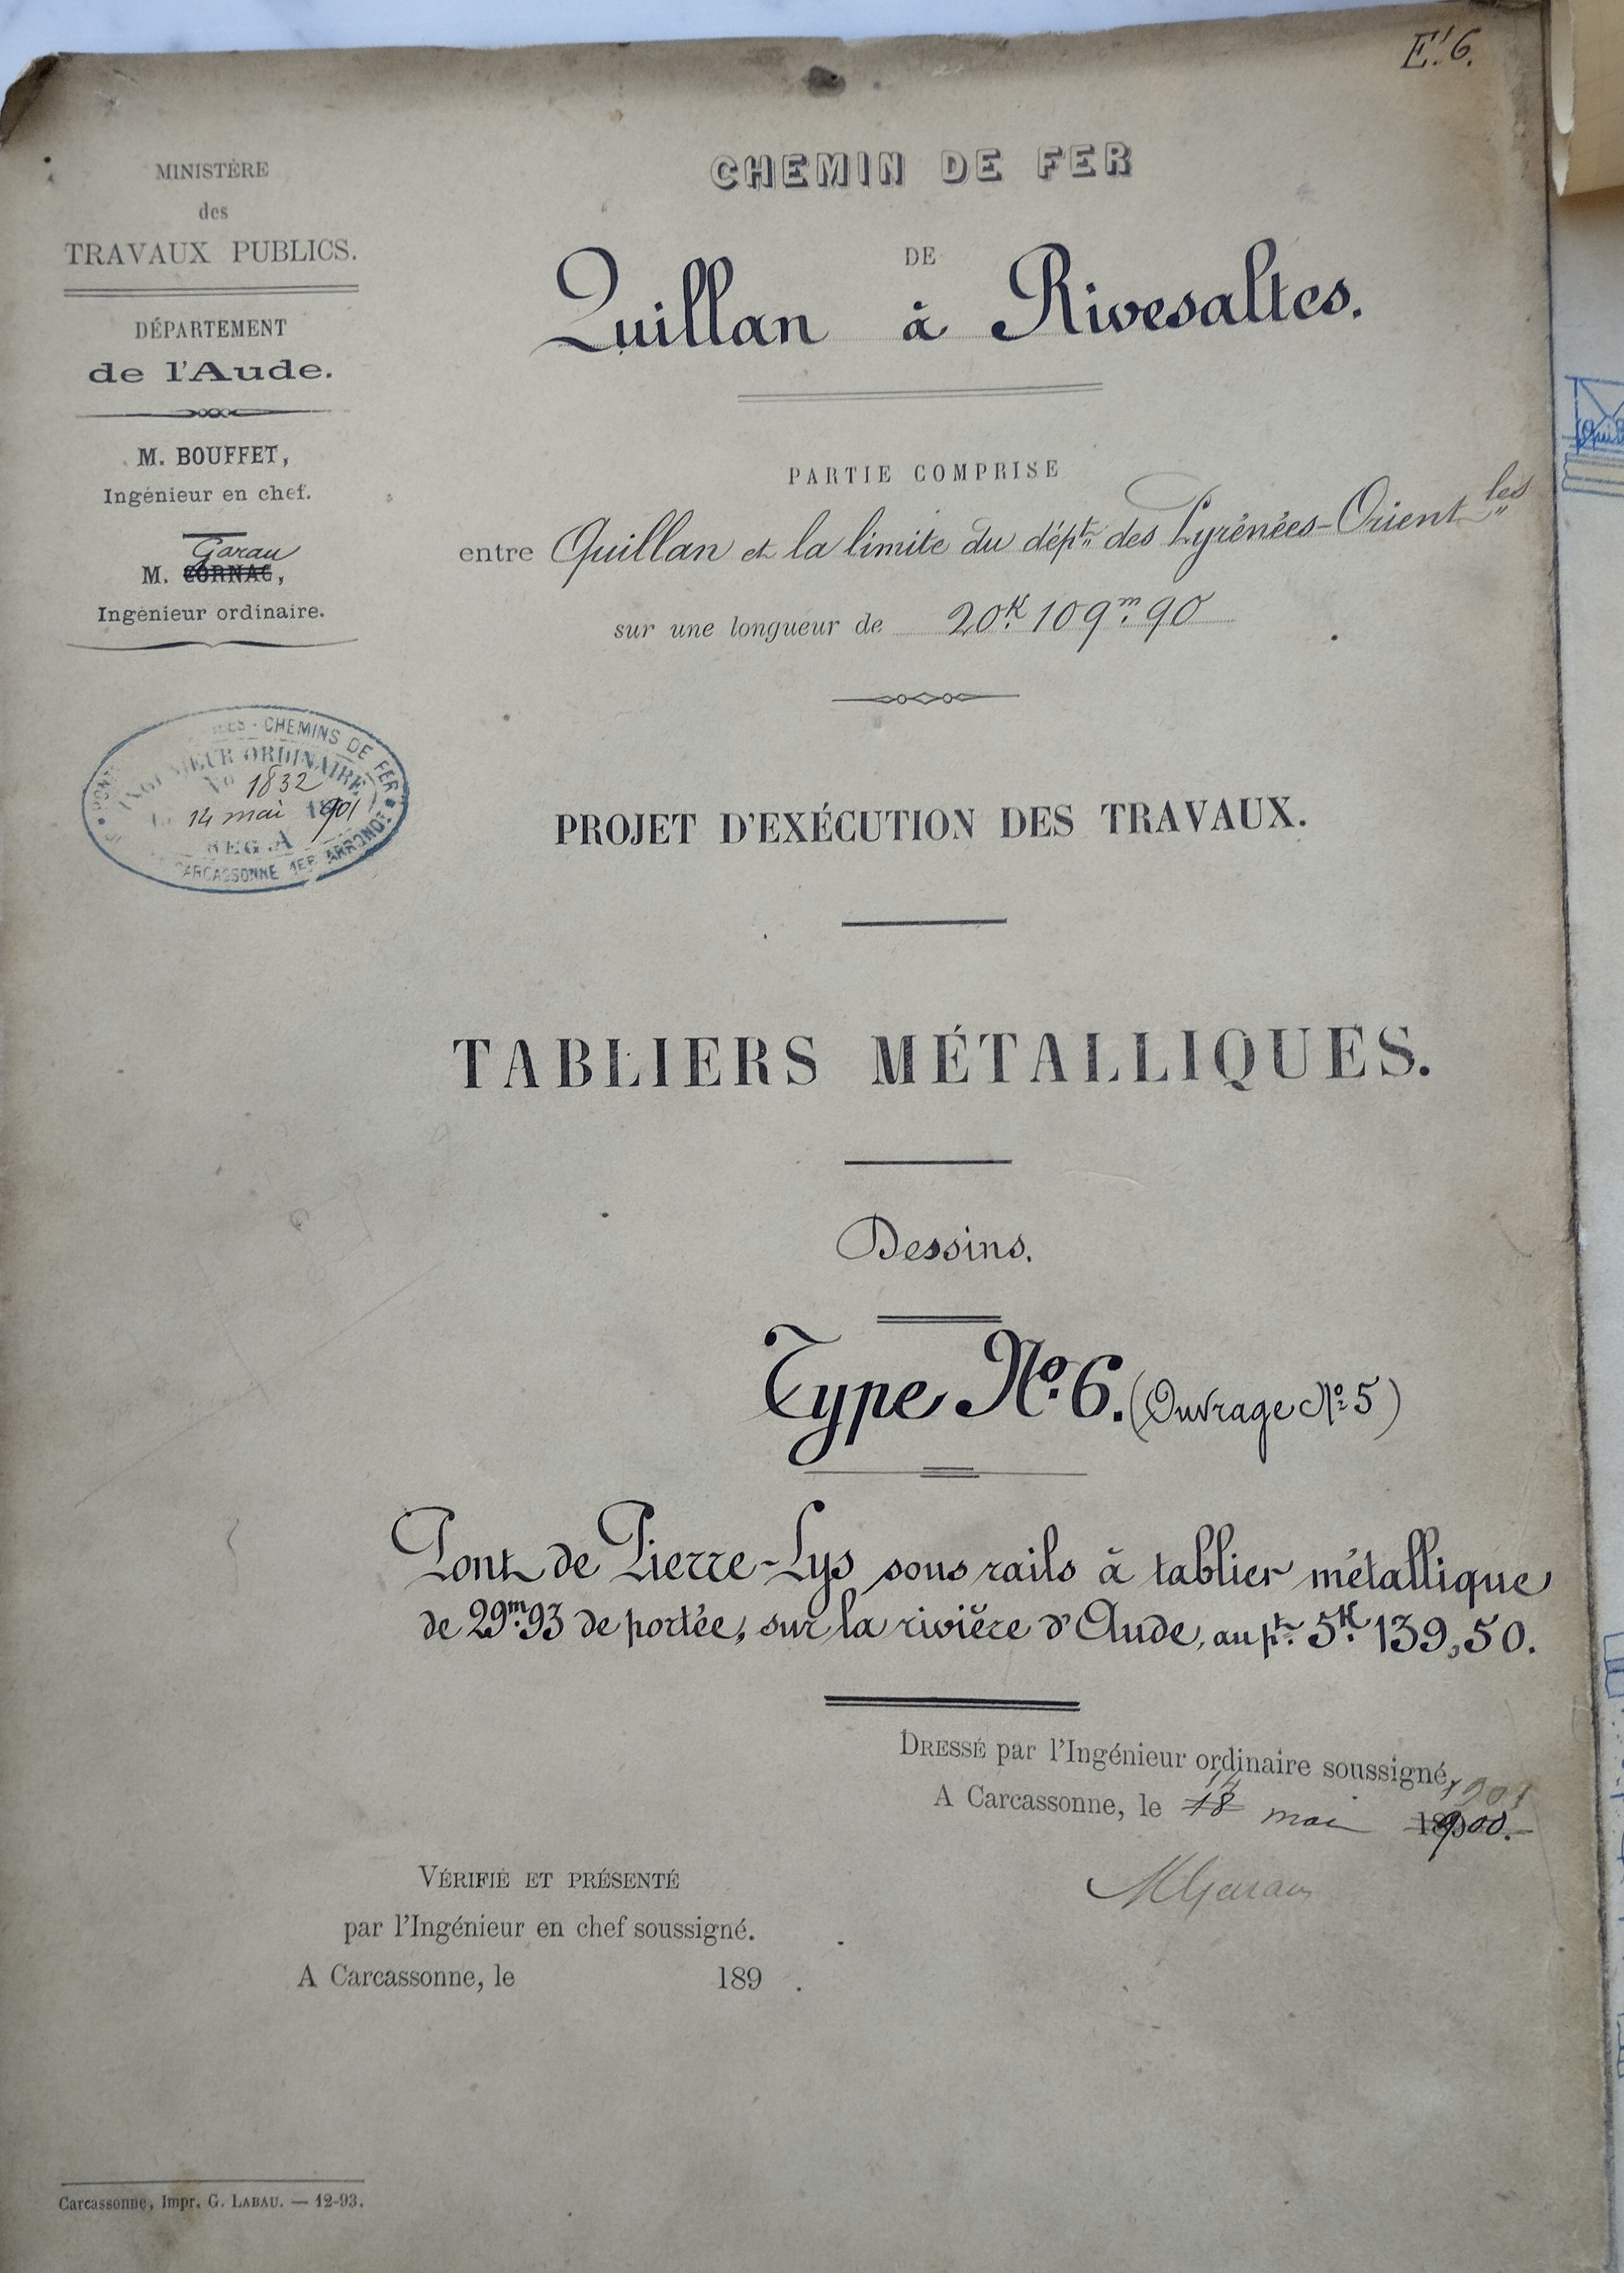 E.6.
MINISTÈRE
des
TRAVAUX PUBLICS.
DÉPARTEMENT
de l'Aude.
M. BOUFFET,
Ingénieur en chef.
Garau
M. CORNAC,
Ingénieur ordinaire.
CHEMINS DE FER
INGÉNIEUR ORDINAIRE
No 1832
14 mai 1901
CARCASSONNE 1ER ARRONDT
CHEMIN DE FER
DE
Quillan à Rivesaltes.
PARTIE COMPRISE
entre Quillan et la limite du dépt. des Pyrénées-Orient.les
sur une longueur de 20K 109m.90
PROJET D'EXÉCUTION DES TRAVAUX.
TABLIERS MÉTALLIQUES.
Dessins.
Type No. 6. (Ouvrage No. 5)
Pont de Pierre-Lys sous rails à tablier métallique
de 29m.93 de portée, sur la rivière d'Aude, au pt. 5K. 139,50.
DRESSÉ par l'Ingénieur ordinaire soussigné,
14 1901
A Carcassonne, le 18 mai 1900.
MGarau
VÉRIFIÉ ET PRÉSENTÉ
par l'Ingénieur en chef soussigné.
A Carcassonne, le 189 .
Carcassonne, Impr. G. LABAU. — 12-93.